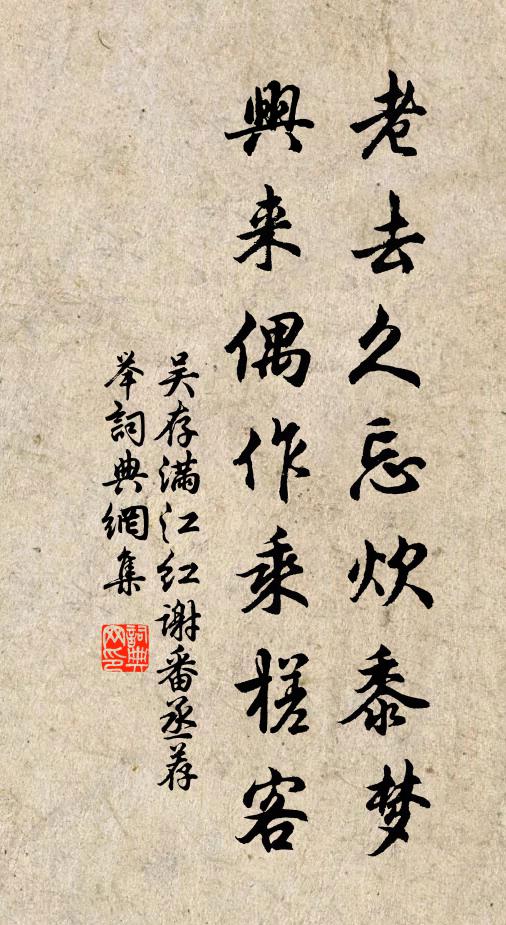 老去久忘炊黍梦
興来偶作乘槎客
吴存满江红谢番丞荐
举詞典網集
詞典网印